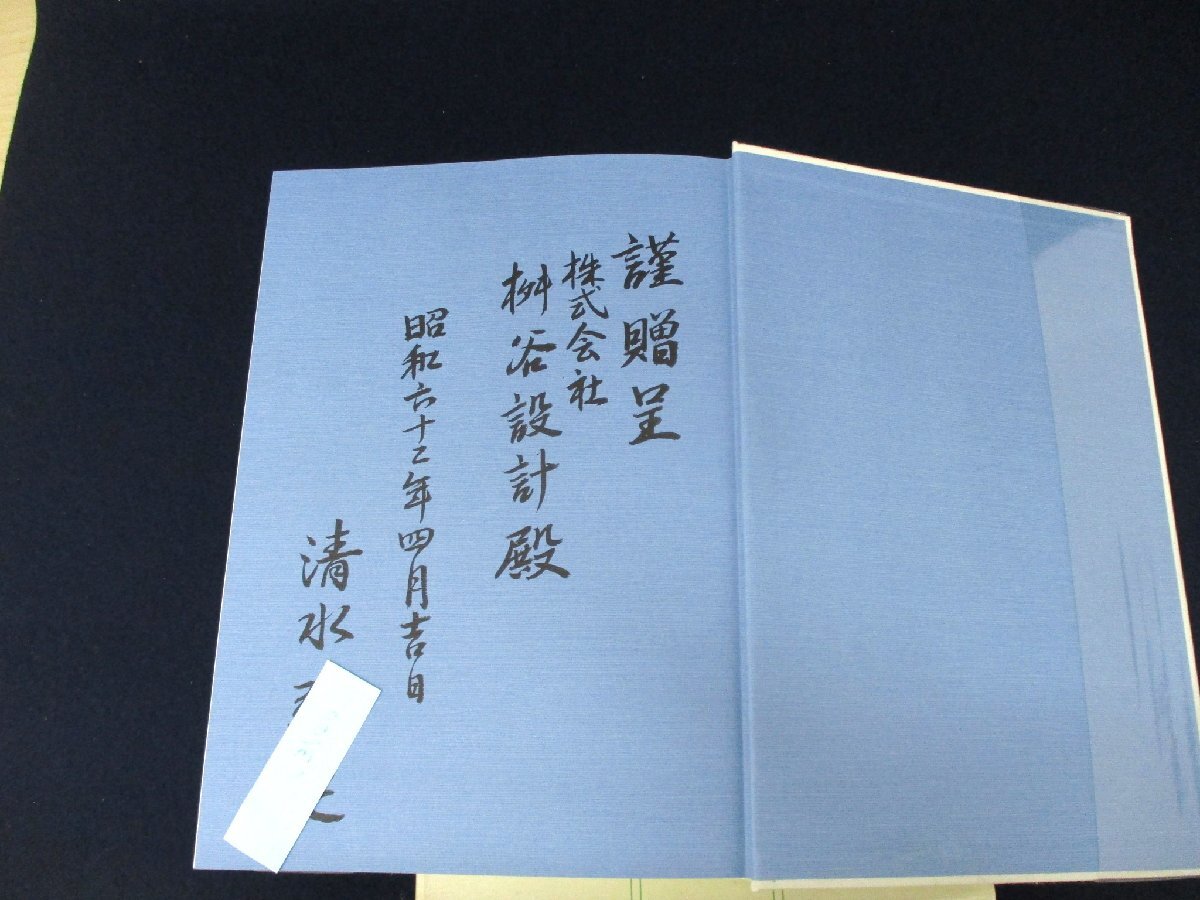 謹贈呈
株式会社
桝谷設計殿
昭和六十二年四月吉日
清水